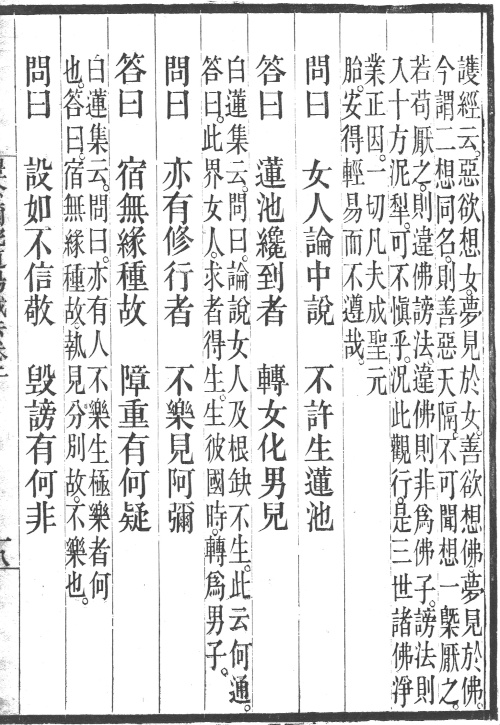 護經云。惡欲想女。夢見於女。善欲想佛。夢見於佛。
今謂二想同名。則善惡天隔。不可聞想一槩厭之。
若苟厭之。則違佛謗法。違佛則非爲佛子。謗法則
入十方泥犁。可不愼乎。况此觀行。是三世諸佛淨
業正因。一切凡夫成聖元
胎。安得輕易而不遵哉。
問曰　女人論中說　不許生蓮池
答曰　蓮池纔到者　轉女化男兒
白蓮集云。問曰。論說女人及根缺不生。此云何通。
答曰。此界女人。求者得生。生彼國時。轉爲男子。
問曰　亦有修行者　不樂見阿彌
答曰　宿無緣種故　障重有何疑
白蓮集云。問曰。亦有人不樂生極樂者何
也。答曰。宿無緣種故。執見分別故。不樂也。
問曰　設如不信敬　毀謗有何非